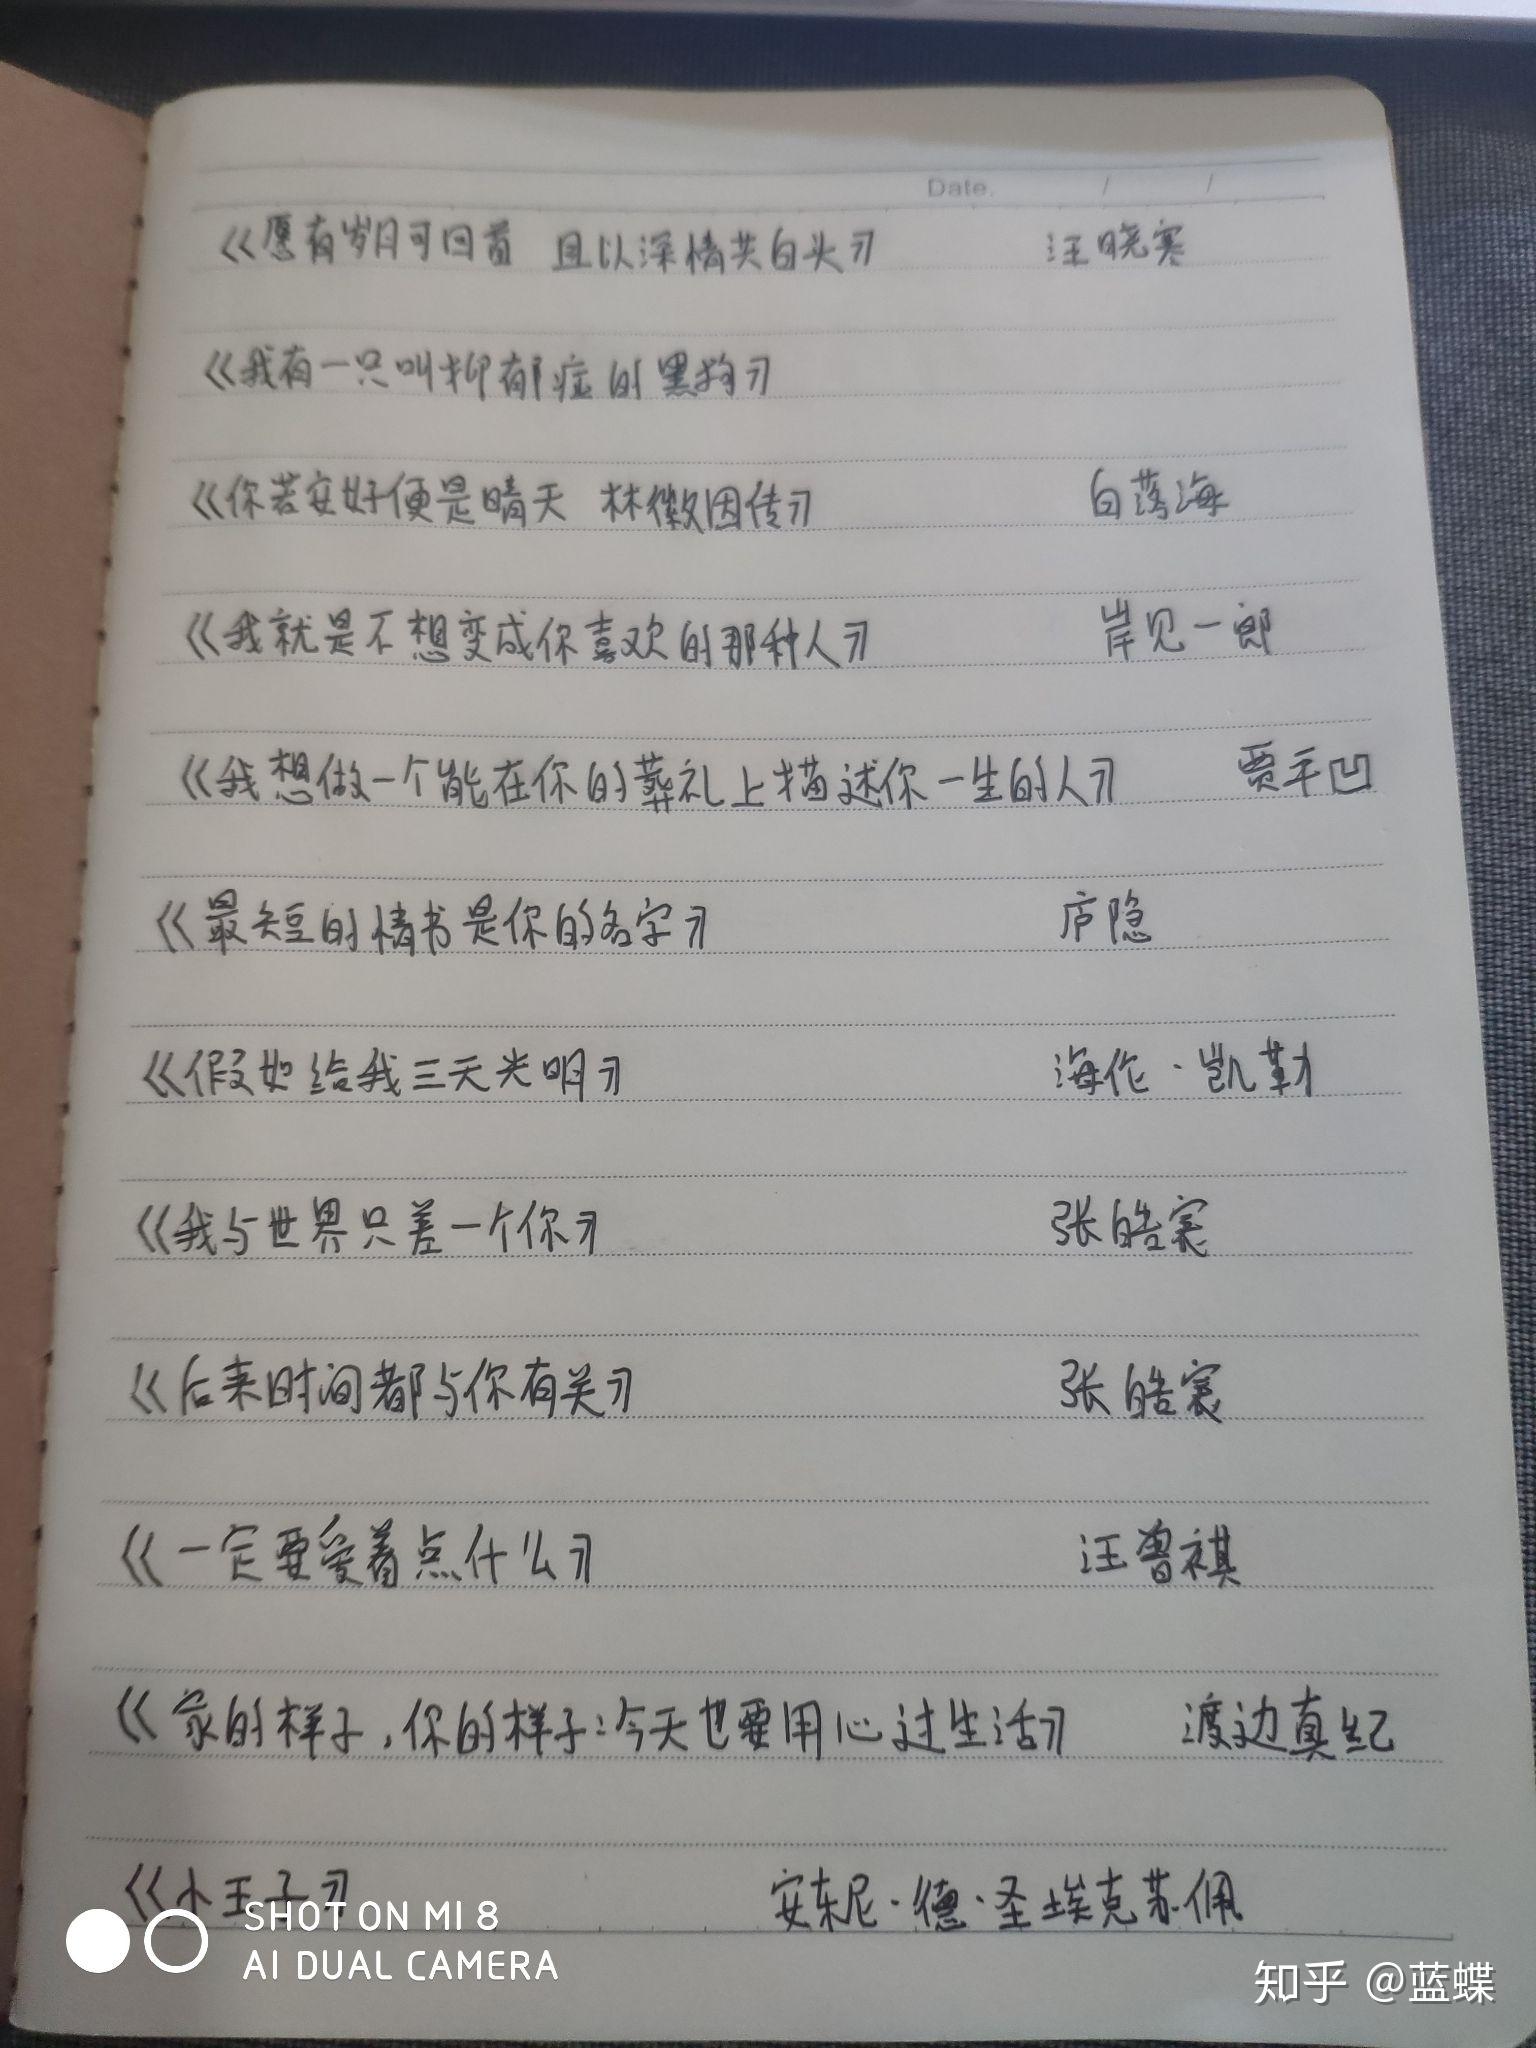 Date. / /
《愿有岁月可回首 且以深情共白头》 汪晓寒
《我有一只叫抑郁症的黑狗》
《你若安好便是晴天 林徽因传》 白落海
《我就是不想变成你喜欢的那种人》 岸见一郎
《我想做一个能在你的葬礼上描述你一生的人》 贾平凹
《最短的情书是你的名字》 庐隐
《假如给我三天光明》 海伦·凯勒
《我与世界只差一个你》 张皓宸
《后来时间都与你有关》 张皓宸
《一定要爱着点什么》 汪曾祺
《家的样子,你的样子:今天也要用心过生活》 渡边真纪
《小王子》 安东尼·德·圣埃克苏佩
SHOT ON MI 8
AI DUAL CAMERA
知乎 @蓝蝶